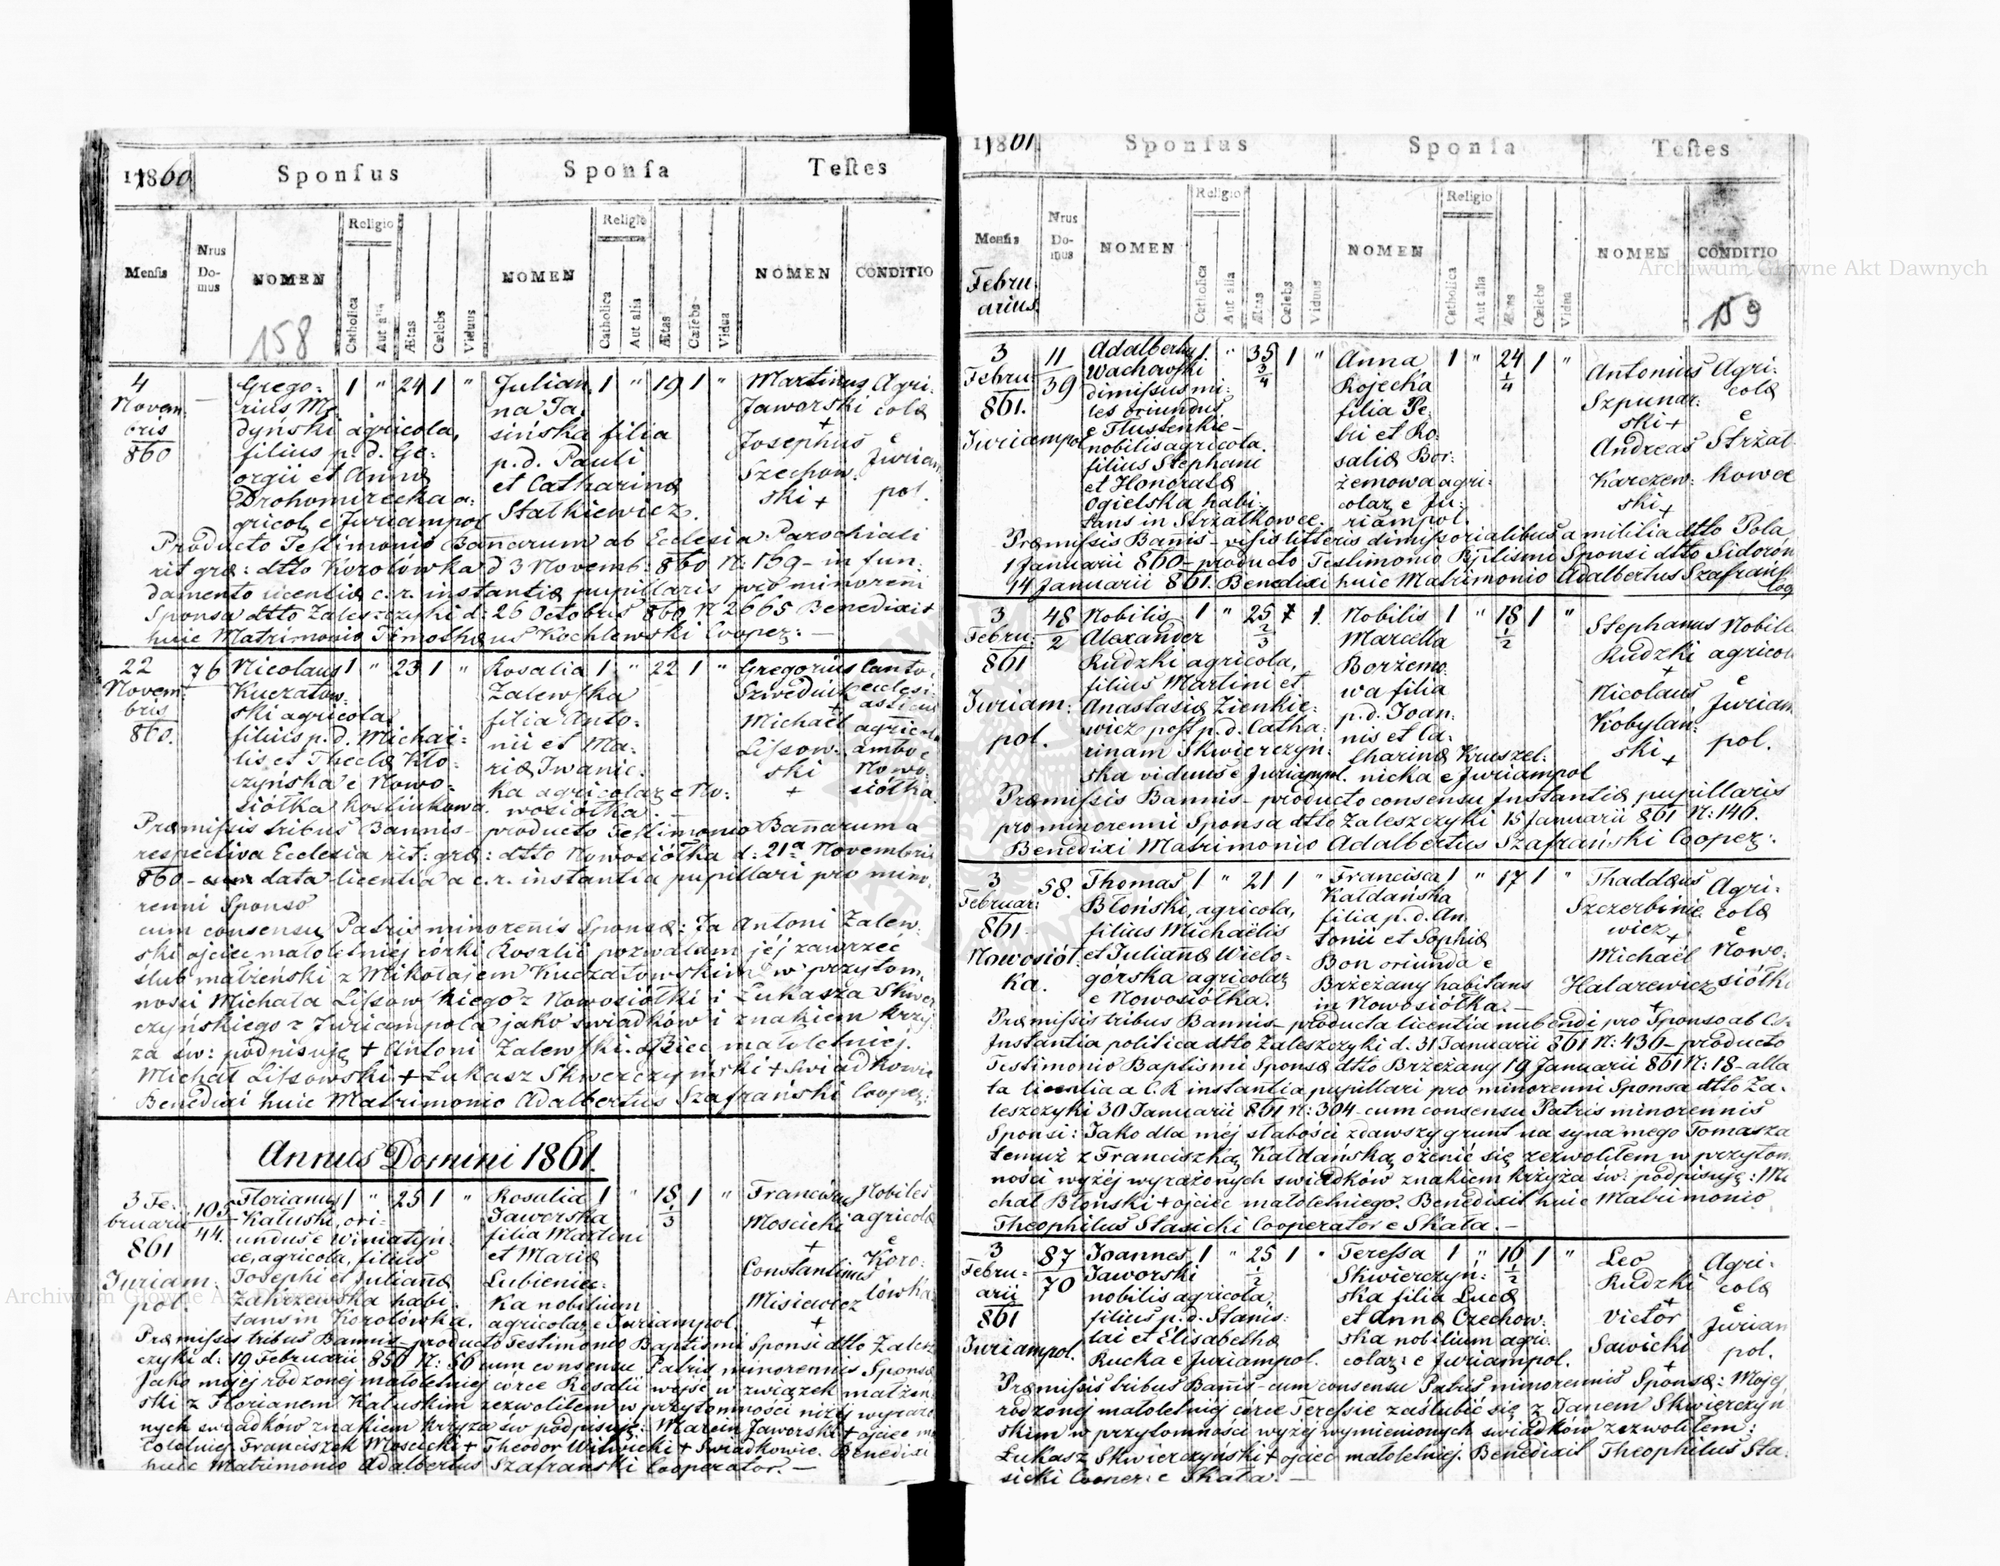 1860
Sponsus
Sponsa
Testes
Mensis
Nrus Domus
NOMEN
Religio
Catholica
Aut alia
Ætas
Cælebs
Viduus
NOMEN
Religio
Catholica
Aut alia
Ætas
Cælebs
Vidua
NOMEN
CONDITIO
158
4 Novembris 860
—
Grego:
rius Me
dyński agricola,
filius p. d. Ge:
orgii et Annæ
Drohomirecka a:
gricol. e Juriampol
1 " 24 1 "
Julian
na Ja
sińska filia
p. d. Pauli
et Catharinæ
Stalkiewicz.
1 " 19 1 "
Martinus
Jaworski
+
Josephus
Szechow
ski +
Agri:
colæ
e
Juriam
pol.
Producto Testimonio Banarum ab Ecclesia Parochiali
rit græ: dtto Korolówka d 3 Novemb: 860 N: 159 - in fun
damento licentiæ c. r. instantiæ pupillaris pro minoreni
Sponsa dtto Zaleszczyki d: 26 Octobris 860 N 2665 Benedixit
huic Matrimonio Timotheus Kochlewski Cooper: —
22 Novembris 860.
76
Nicolaus
Kuczałow
ski agricola
filius p. d. Michaë:
lis et Theclæ Kło
czyńska e Nowo
siółka Kostiukowa.
1 " 23 1 "
Rosalia
Zalewska
filia Anto
nii et Ma:
riæ Iwanic
ka agricolar e No:
wosiółka.
1 " 22 1 "
Gregorius
Szwediuk
+
Michaël
Lissow
ski
+
Canto
ecclesi
asticus
agricola
ambo e
Nowo
siółka.
Præmissis tribus Bannis - producto Testimonio Banarum a
respectiva Ecclesia rit: græ: dtto Nowosiółka d: 21ª Novembris
860 - data licentia a c. r. instantia pupillari pro mino
renni Sponso
cum consensu Patris minorennis Sponsæ: Ja Antoni Zalew
ski ojciec małoletniej córki Rosalii pozwalam jéj zawrzec
ślub małżeński z Mikołajem Kuczałowskim w przytom
ności Michała Lissowskiego z Nowosiółki i Łukasza Skwer
czyńskiego z Juriampola jako świadków i znakiem krzy
za św: podpisuję + Antoni Zalewski. Ojciec małoletniej.
Michał Lissowski + Łukasz Skwerczyński + Świadkowie
Benedixi huic Matrimonio Adalbertus Szafrański Cooper:
Annus Domini 1861.
3 Februarii 861
Juriampol
105
44.
Florianus
Kałuski, ori
undus e Winiatyń
ce, agricola, filius
Josephi et Julianæ
Zakrzewska habi
tans in Korolówka.
1 " 25 1 "
Rosalia
Jaworska
filia Martini
et Mariæ
Lubieniec
ka nobilium
agricolar e Juriampol
1 " 18 1/3 1 "
Franciscus
Moscicki
+
Constantinus
Misiewicz
+
Nobiles
agricolæ
e
Koro
lówka
Præmissis tribus Bannis producto Testimonio Baptismi Sponsi dtto Zalesz
czyki d: 19 Februarii 856 N: 56 cum consensu Patris minorennis Sponsæ
Jako mojej rodzonej małoletniej córce Rosalii wejść w związek małżeń
ski z Florianem Kałuskim zezwolitem w przytomności niżej wyrażo
nych swiadków znakiem krzyza św podpisuję: Marcin Jaworski + ojciec ma
łoletniej Franciszek Moscicki + Theodor Witwicki + Świadkowie. Benedixi
huic Matrimonio Adalbertus Szafrański Cooperator. —
1861
Sponsus
Sponsa
Testes
Mensis
Februarius
Nrus Domus
NOMEN
Religio
Catholica
Aut alia
Ætas
Cælebs
Viduus
NOMEN
Religio
Catholica
Aut alia
Ætas
Cælebs
Vidua
NOMEN
CONDITIO
159
3 Febru: 861.
Juriampol
11
39
Adalbertus
Wachowski
dimissus mi:
les oriundus
e Tłustenkie
nobilis agricola
filius Stephani
et Honoratæ
Ogielska habi
tans in Strzałkowce.
1 " 35 3/4 1 "
Anna
Rojecka
filia Pe
tri et Ro
saliæ Bor:
żemowa agri
colar e Ju:
riampol.
1 " 24 1/4 1 "
Antonius
Szpunar
ski +
Andreas
Karczew
ski +
Agri:
colæ
e
Strzał
kowce
Præmissis Banis - visis litteris dimissorialibus a militia dtto Pola
1 Januarii 860 - producto Testimonio Bptismi Sponsi dtto Sidorów
14 Januarii 861. Benedixi huic Matrimonio Adalbertus Szafrański
Coop
3 Febru: 861
Juriampol.
48
2
Nobilis
Alexander
Rudzki agricola,
filius Martini et
Anastasiæ Zienkie
wicz post p. d. Catha:
rinam Skwierczyń
ska viduus e Juriampol.
1 " 25 2/3 1
Nobilis
Marcella
Borżemo
wa filia
p. d. Joan
nis et Ca
tharinæ Kruszel
nicka e Juriampol
1 " 18 1/2 1 "
Stephanus
Rudzki
+
Nicolaus
Kobylań
ski +
Nobile
agricol
e
Juriam
pol.
Præmissis Bannis - producto consensu Instantiæ pupillaris
pro minorenni Sponsa dtto Zaleszczyki 15 Januarii 861 N: 146.
Benedixi Matrimonio Adalbertus Szafrański Cooper:
3 Februar: 861
Nowosiółka.
58.
Thomas
Błoński, agricola,
filius Michaëlis
et Julianæ Wielo
górska agricolar
e Nowosiółka.
1 " 21 1 "
Francisca
Kałdańska
filia p. d. An
tonii et Sophiæ
Bon oriunda e
Brzeżany habitans
in Nowosiółka. —
1 " 17 1 "
Thaddæus
Szczerbinie
wicz +
Michaël
Halarewicz
+
Agri:
colæ
e
Nowo:
siółki
Præmissis tribus Bannis - producta licentia nubendi pro Sponso ab C.R.
Instantia politica dtto Zaleszczyki d. 31 Januarii 861 N: 436 - producto
Testimonio Baptismi Sponsæ dtto Brzeżany 19 Januarii 861 N: 18 - alla
ta licentia a C. R. instantia pupillari pro minorenni Sponsa dtto Za
leszczyki 30 Januarii 861 N: 304 - cum consensu Patris minorennis
Sponsi: Jako dla méj słabości zdawszy grunt na syna mego Tomasza
temuż z Franciszką Kałdańską ożenić się zezwolitem w przytom
ności wyżéj wyrażonych swiadków znakiem krzyża św: podpisuję: Mi
chał Błoński + ojciec małoletniego. Benedixit huic Matrimonio
Theophilus Stasicki Cooperator e Skała. —
3 Februarii 861
Juriampol.
87
70
Joannes
Jaworski
nobilis agricola
filius p. d. Stanis:
lai et Elisabethæ
Rucka e Juriampol.
1 " 25 1/2 1 "
Teressa
Skwierczyń:
ska filia Lucæ
et Annæ Czechow
ska nobilium agri
colar: e Juriampol.
1 " 16 1/2 1 "
Leo
Rudzki
+
Victor
Sawicki
+
Agri:
colæ
e
Juriam
pol.
Præmissis tribus Banis - cum consensu Patris minorennis Sponsæ: Mojej
rodzonej małoletniej córce Teressie zaślubić się z Janem Skwierczyń
skim w przytomności wyżej wymienionych świadków zezwolitem:
Łukasz Skwierczyński + ojciec małoletniej. Benedixit Theophilus Sta
sicki Cooper: e Skała. —
Archiwum Główne Akt Dawnych
Archiwum Główne Akt Dawnych